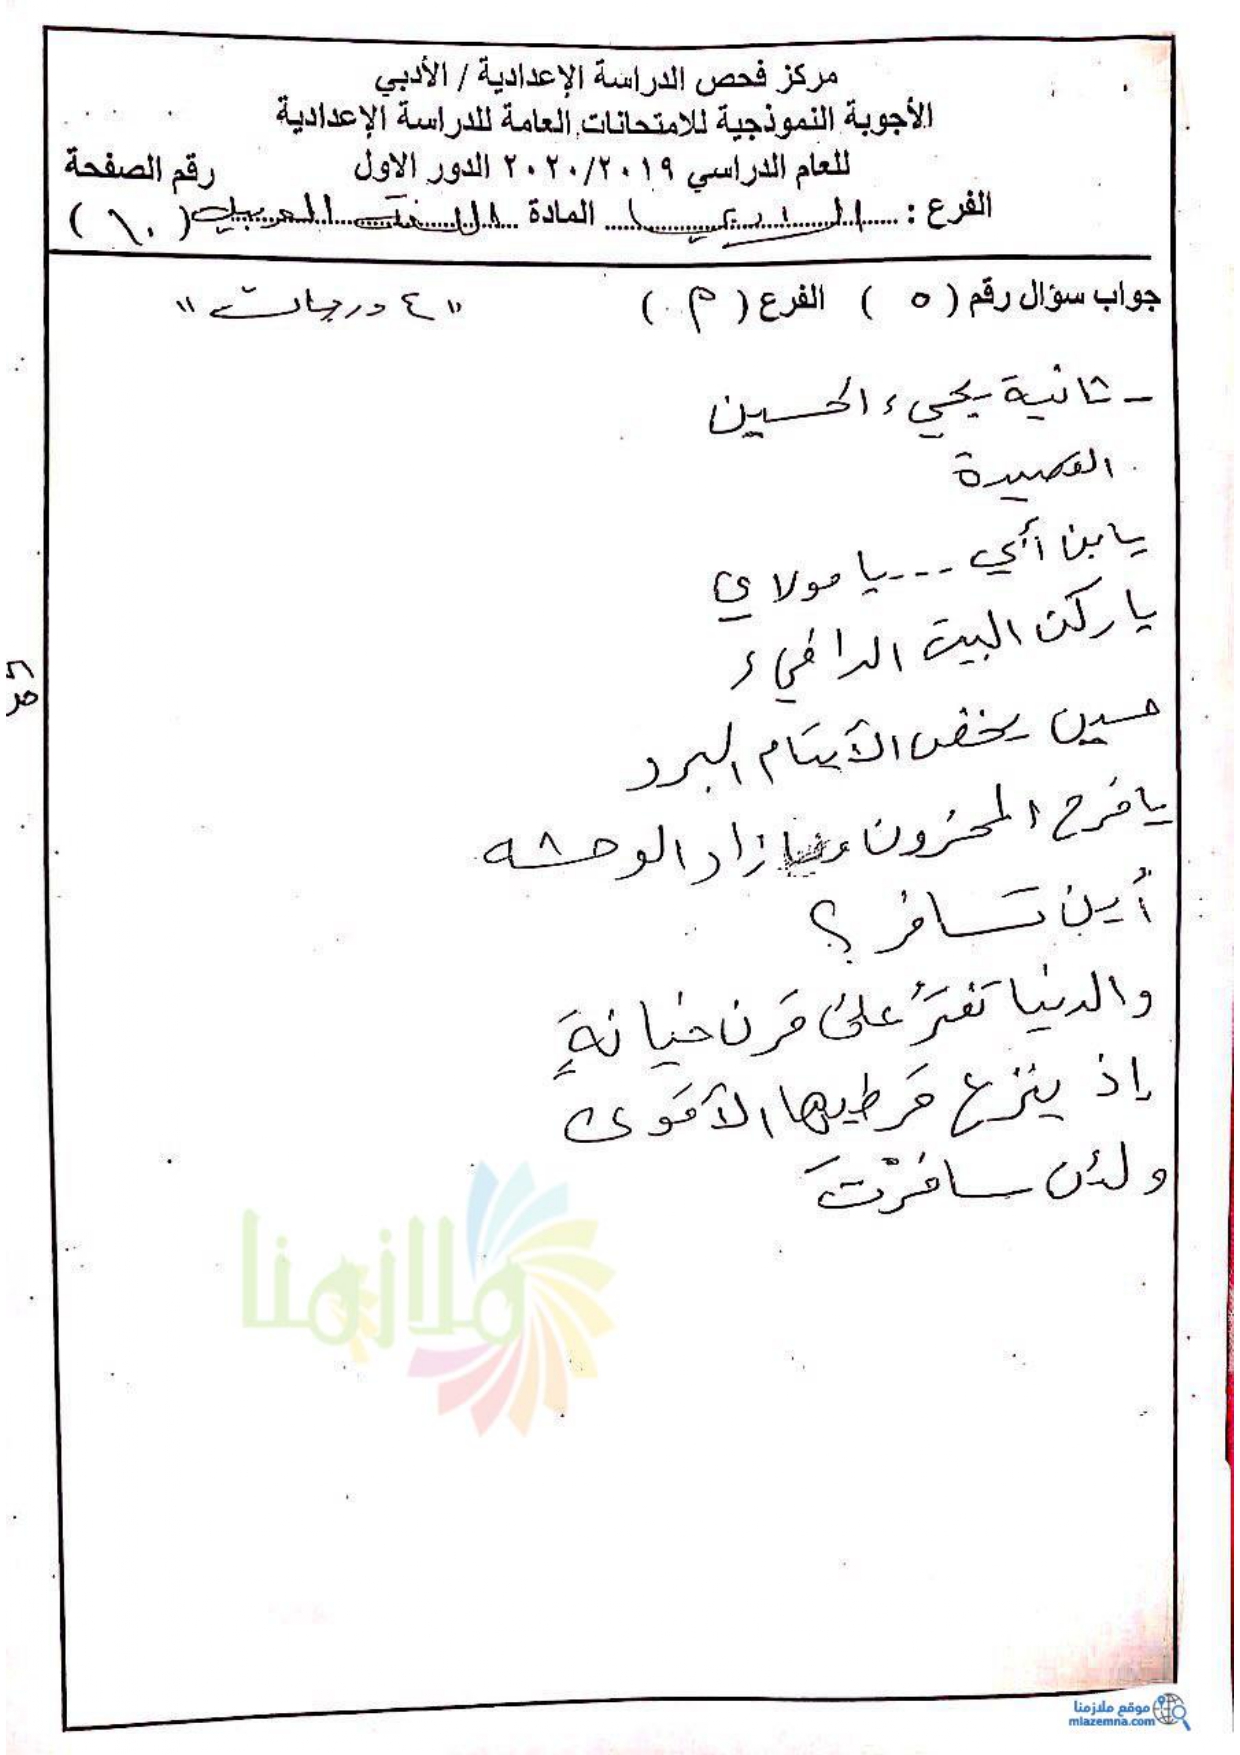 مركز فحص الدراسة الإعدادية / الأدبي
الأجوبة النموذجية للامتحانات العامة للدراسة الإعدادية
للعام الدراسي ٢٠٢٠/٢٠١٩ الدور الاول رقم الصفحة
الفرع : المادة اللغة العربية ( ١٠ )
جواب سؤال رقم ( ٥ ) الفرع ( م ) " ٤ درجات "
- ثانية يجيء الحسين
القصيدة
يابن أبي ... يا مولاي
يا ركن البيت الدافيء
حسين يخض الأيتام البرد
يا فرح المحزون زاد الوحشه
أين تسافر ؟
والدنيا تفترُّ على قرن خيانةٍ
إذ ينزع قرطيها الأقوى
ولئن سافرْتَ
ملازمنا
موقع ملازمنا
mlazemna.com